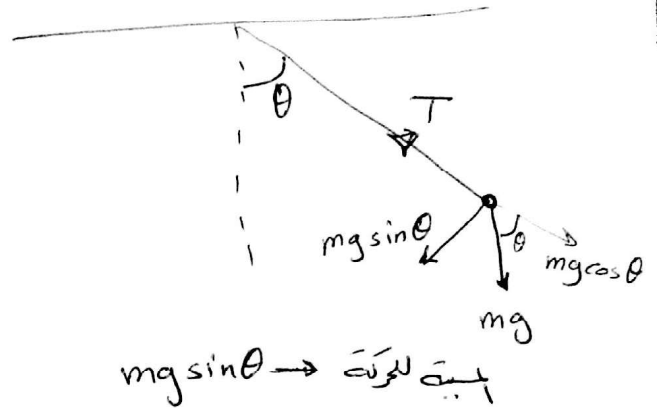 θ
T
mg sinθ
θ
mg cosθ
mg
mg sinθ → المسببة للحركة